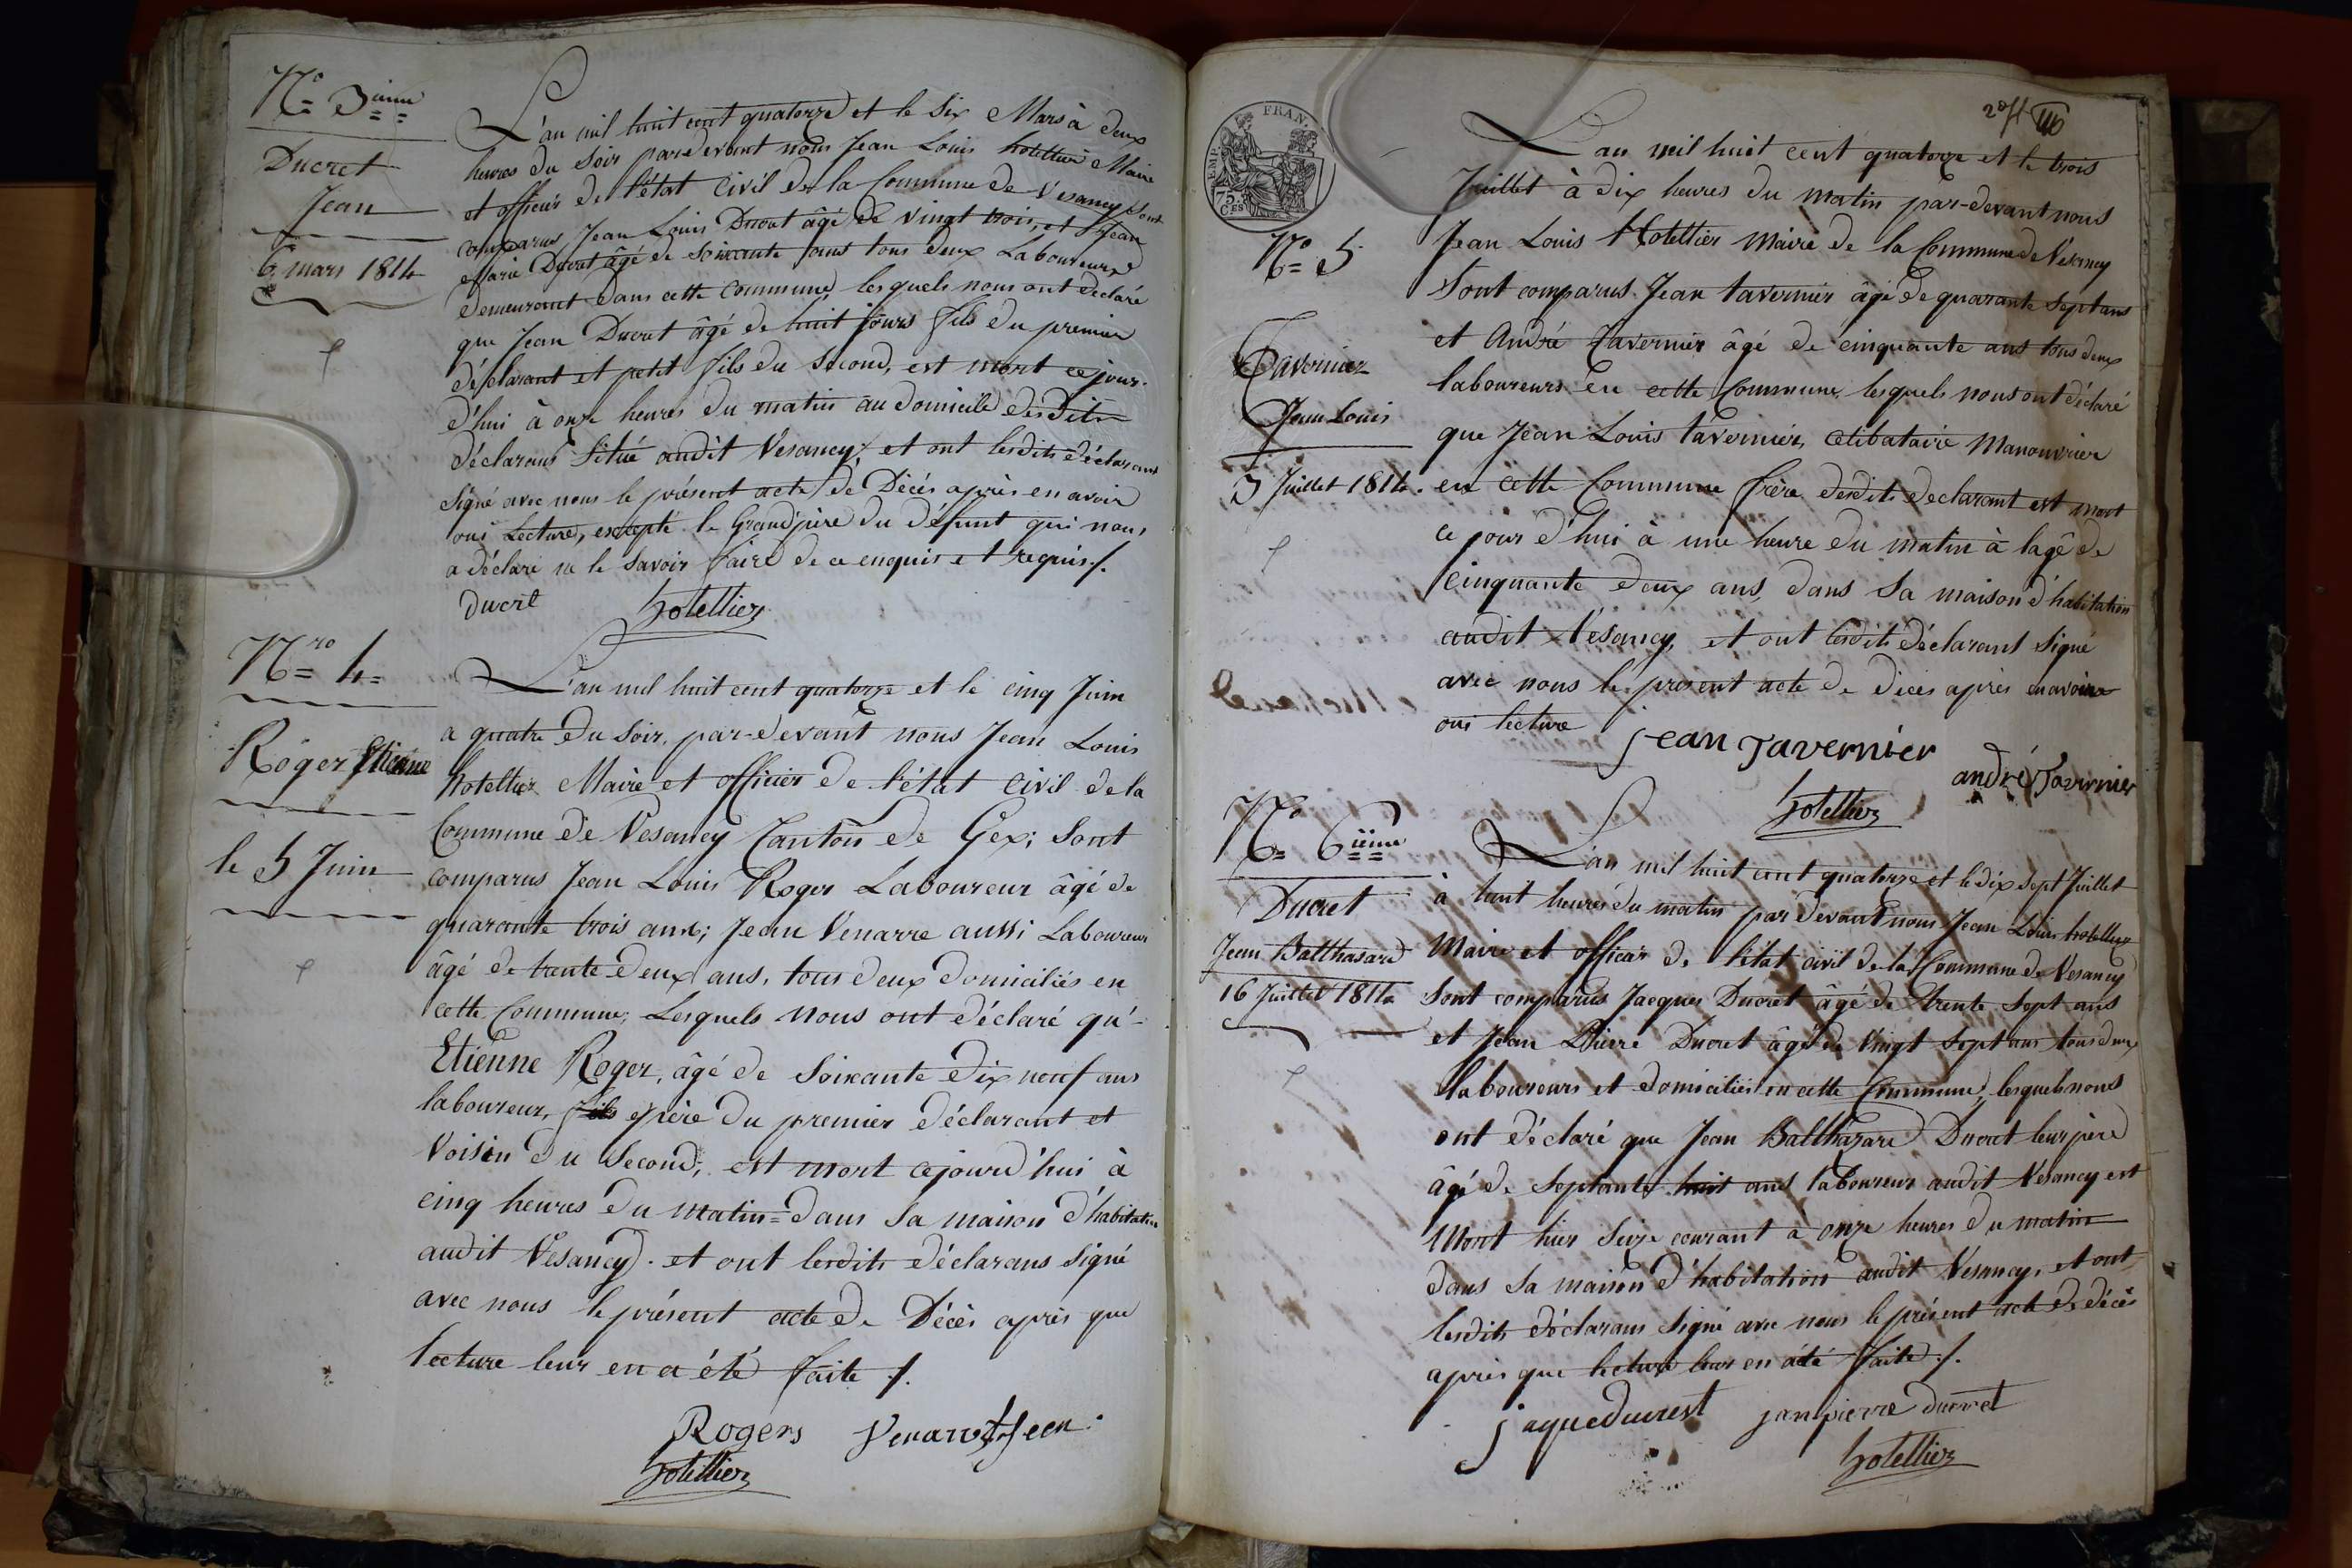 N.o 3ieme
Ducret
Jean
6 mars 1814
L'an mil huit cent quatorze et le Six Mars à deux
heures du Soir pardevant nous Jean Louis hotellier Maire
et officier de l'état Civil de la Commune de Vesancy Sont
comparus Jean Louis Ducret âgé de vingt trois, et Jean
Marie Ducret âgé de Soixante ans tous deux Laboureurs
demeurant dans cette commune, lesquels nous ont déclaré
que Jean Ducret âgé de huit jours fils du premier
déclarant et petit fils du Second, est mort ce jour-
d'hui à onze heures du matin au domicile desdits
déclarans Situé audit Vésancy, et ont lesdits déclarans
Signé avec nous le présent acte de Décés après en avoir
oui Lecture, excepté le Grand'père du défunt qui nous
a déclaré ne le Savoir faire de ce enquis et requis ./.
ducret hotellier
N.ro 4=
Roger Etienne
le 5 Juin
L'an mil huit cent quatorze et le cinq Juin
a quatre du Soir, par-devant nous Jean Louis
hotellier Maire et officier de l'état Civil de la
Commune de Vesancy Canton de Gex; Sont
comparus Jean Louis Roger Laboureur âgé de
quarante trois ans; Jean Venarre aussi Laboureur
âgé de trente deux ans, tous deux domiciliés en
cette Commune; Lesquels nous ont déclaré qu'-
Etiénne Roger, âgé de Soixante dix neuf ans
laboureur, fils père du premier déclarant et
Voisin du Second, est mort cejourd'hui à
cinq heures du matin = dans Sa maison d'habitation
audit Vésancy. et ont lesdits déclarans Signé
avec nous le présent acte de Décès après que
lecture leur en a été faite ./.
Rogers Venarre Jean
hotellier
EMP. FRAN.
75. CES
N.o 5
Tavernier
Jean Louis
3 Juillet 1814.
L'an mil huit cent quatorze et le trois
Juillet à dix heures du matin par-devant nous
Jean Louis Hotellier maire de la Commune de Vésancy
Sont comparus Jean tavernier âgé de quarante Sept ans
et André Tavernier âgé de cinquante ans tous deux
laboureurs en cette Commune, lesquels nous ont déclaré
que Jean Louis tavernier, célibataire Manouvrier
en cette Commune frère desdits declarant est mort
ce jour d'hui à une heure du matin à lagê de
cinquante deux ans, dans Sa maison d'habitation
audit Vésancy, et ont lesdits déclarans Signé
avec nous le présent acte de dècès après en avoir
oui lecture
jean Tavernier andré Tavernier
hotellier
N.o 6ieme
Ducret
Jean Balthasard
16 Juillet 1814
L'an mil huit cent quatorze et le dix Sept Juillet
à huit heures du matin par devant nous Jean Louis hotellier
Maire et officier de l'état civil de la Commune de Vesancy
Sont comparus Jacques Ducret âgé de trente Sept ans
et Jean Pierre Ducret âgé de Vingt Sept ans tous deux
laboureurs et domiciliés en cette Commune, lesquels nous
ont déclaré que Jean Balthazard Ducret leur père
âgé de Septante huit ans laboureur audit Vésancy est
Mort hier Seize courant à onze heures du matin
dans Sa maison d'habitation audit Vésancy, et ont
lesdits déclarans Signé avec nous le présent acte de décès
après que lecture leur en a été faite ./.
jaqueducrest janpierre ducret
hotellier